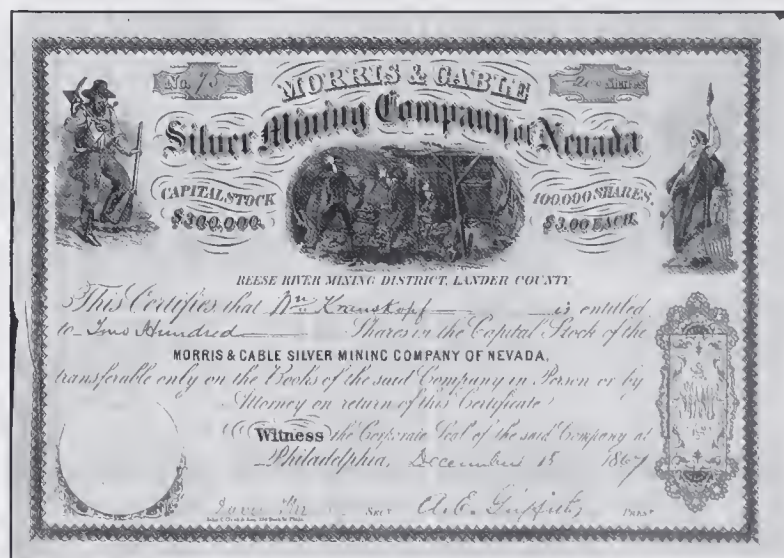 No. 75
200 Shares
MORRIS & CABLE
Silver Mining Company of Nevada
CAPITAL STOCK
$300,000.
100,000 SHARES,
$3.00 EACH.
REESE RIVER MINING DISTRICT, LANDER COUNTY
This Certifies that Wm Krauskopf is entitled
to Two Hundred Shares in the Capital Stock of the
MORRIS & CABLE SILVER MINING COMPANY OF NEVADA,
transferable only on the Books of the said Company in Person or by
Attorney on return of this Certificate
Witness the Corporate Seal of the said Company at
Philadelphia, December 15 1867
Sect A. E. Griffith, Prest